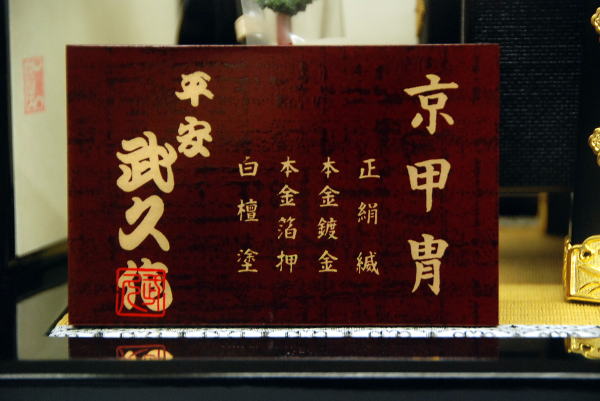 京甲冑
正絹縅
本金鍍金
本金箔押
白檀塗
平安
武久